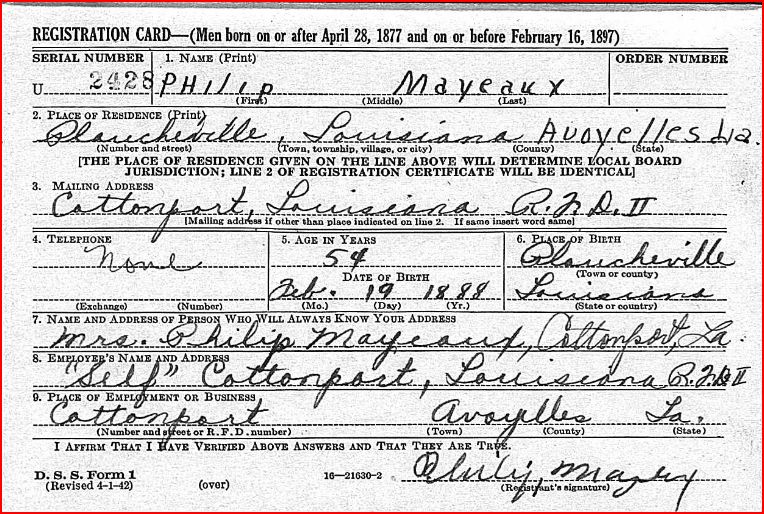 REGISTRATION CARD—(Men born on or after April 28, 1877 and on or before February 16, 1897)
SERIAL NUMBER 1. NAME (Print) ORDER NUMBER
U 2428 PHILIP MAYEAUX
(First) (Middle) (Last)
2. PLACE OF RESIDENCE (Print)
Plaucheville, Louisiana Avoyelles La.
(Number and street) (Town, township, village, or city) (County) (State)
[THE PLACE OF RESIDENCE GIVEN ON THE LINE ABOVE WILL DETERMINE LOCAL BOARD
JURISDICTION; LINE 2 OF REGISTRATION CERTIFICATE WILL BE IDENTICAL]
3. MAILING ADDRESS
Cottonport, Louisiana R.F.D. II
[Mailing address if other than place indicated on line 2. If same insert word same]
4. TELEPHONE 5. AGE IN YEARS 6. PLACE OF BIRTH
None 54 Plaucheville
DATE OF BIRTH (Town or county)
Feb. 19 1888 Louisiana
(Exchange) (Number) (Mo.) (Day) (Yr.) (State or country)
7. NAME AND ADDRESS OF PERSON WHO WILL ALWAYS KNOW YOUR ADDRESS
Mrs. Philip Mayeaux, Cottonport, La.
8. EMPLOYER'S NAME AND ADDRESS
"Self" Cottonport, Louisiana R.F.D. II
9. PLACE OF EMPLOYMENT OR BUSINESS
Cottonport Avoyelles La.
(Number and street or R. F. D. number) (Town) (County) (State)
I AFFIRM THAT I HAVE VERIFIED ABOVE ANSWERS AND THAT THEY ARE TRUE.
D. S. S. Form 1
(Revised 4-1-42) (over) 16—21630-2 Philip
(Registrant's signature)